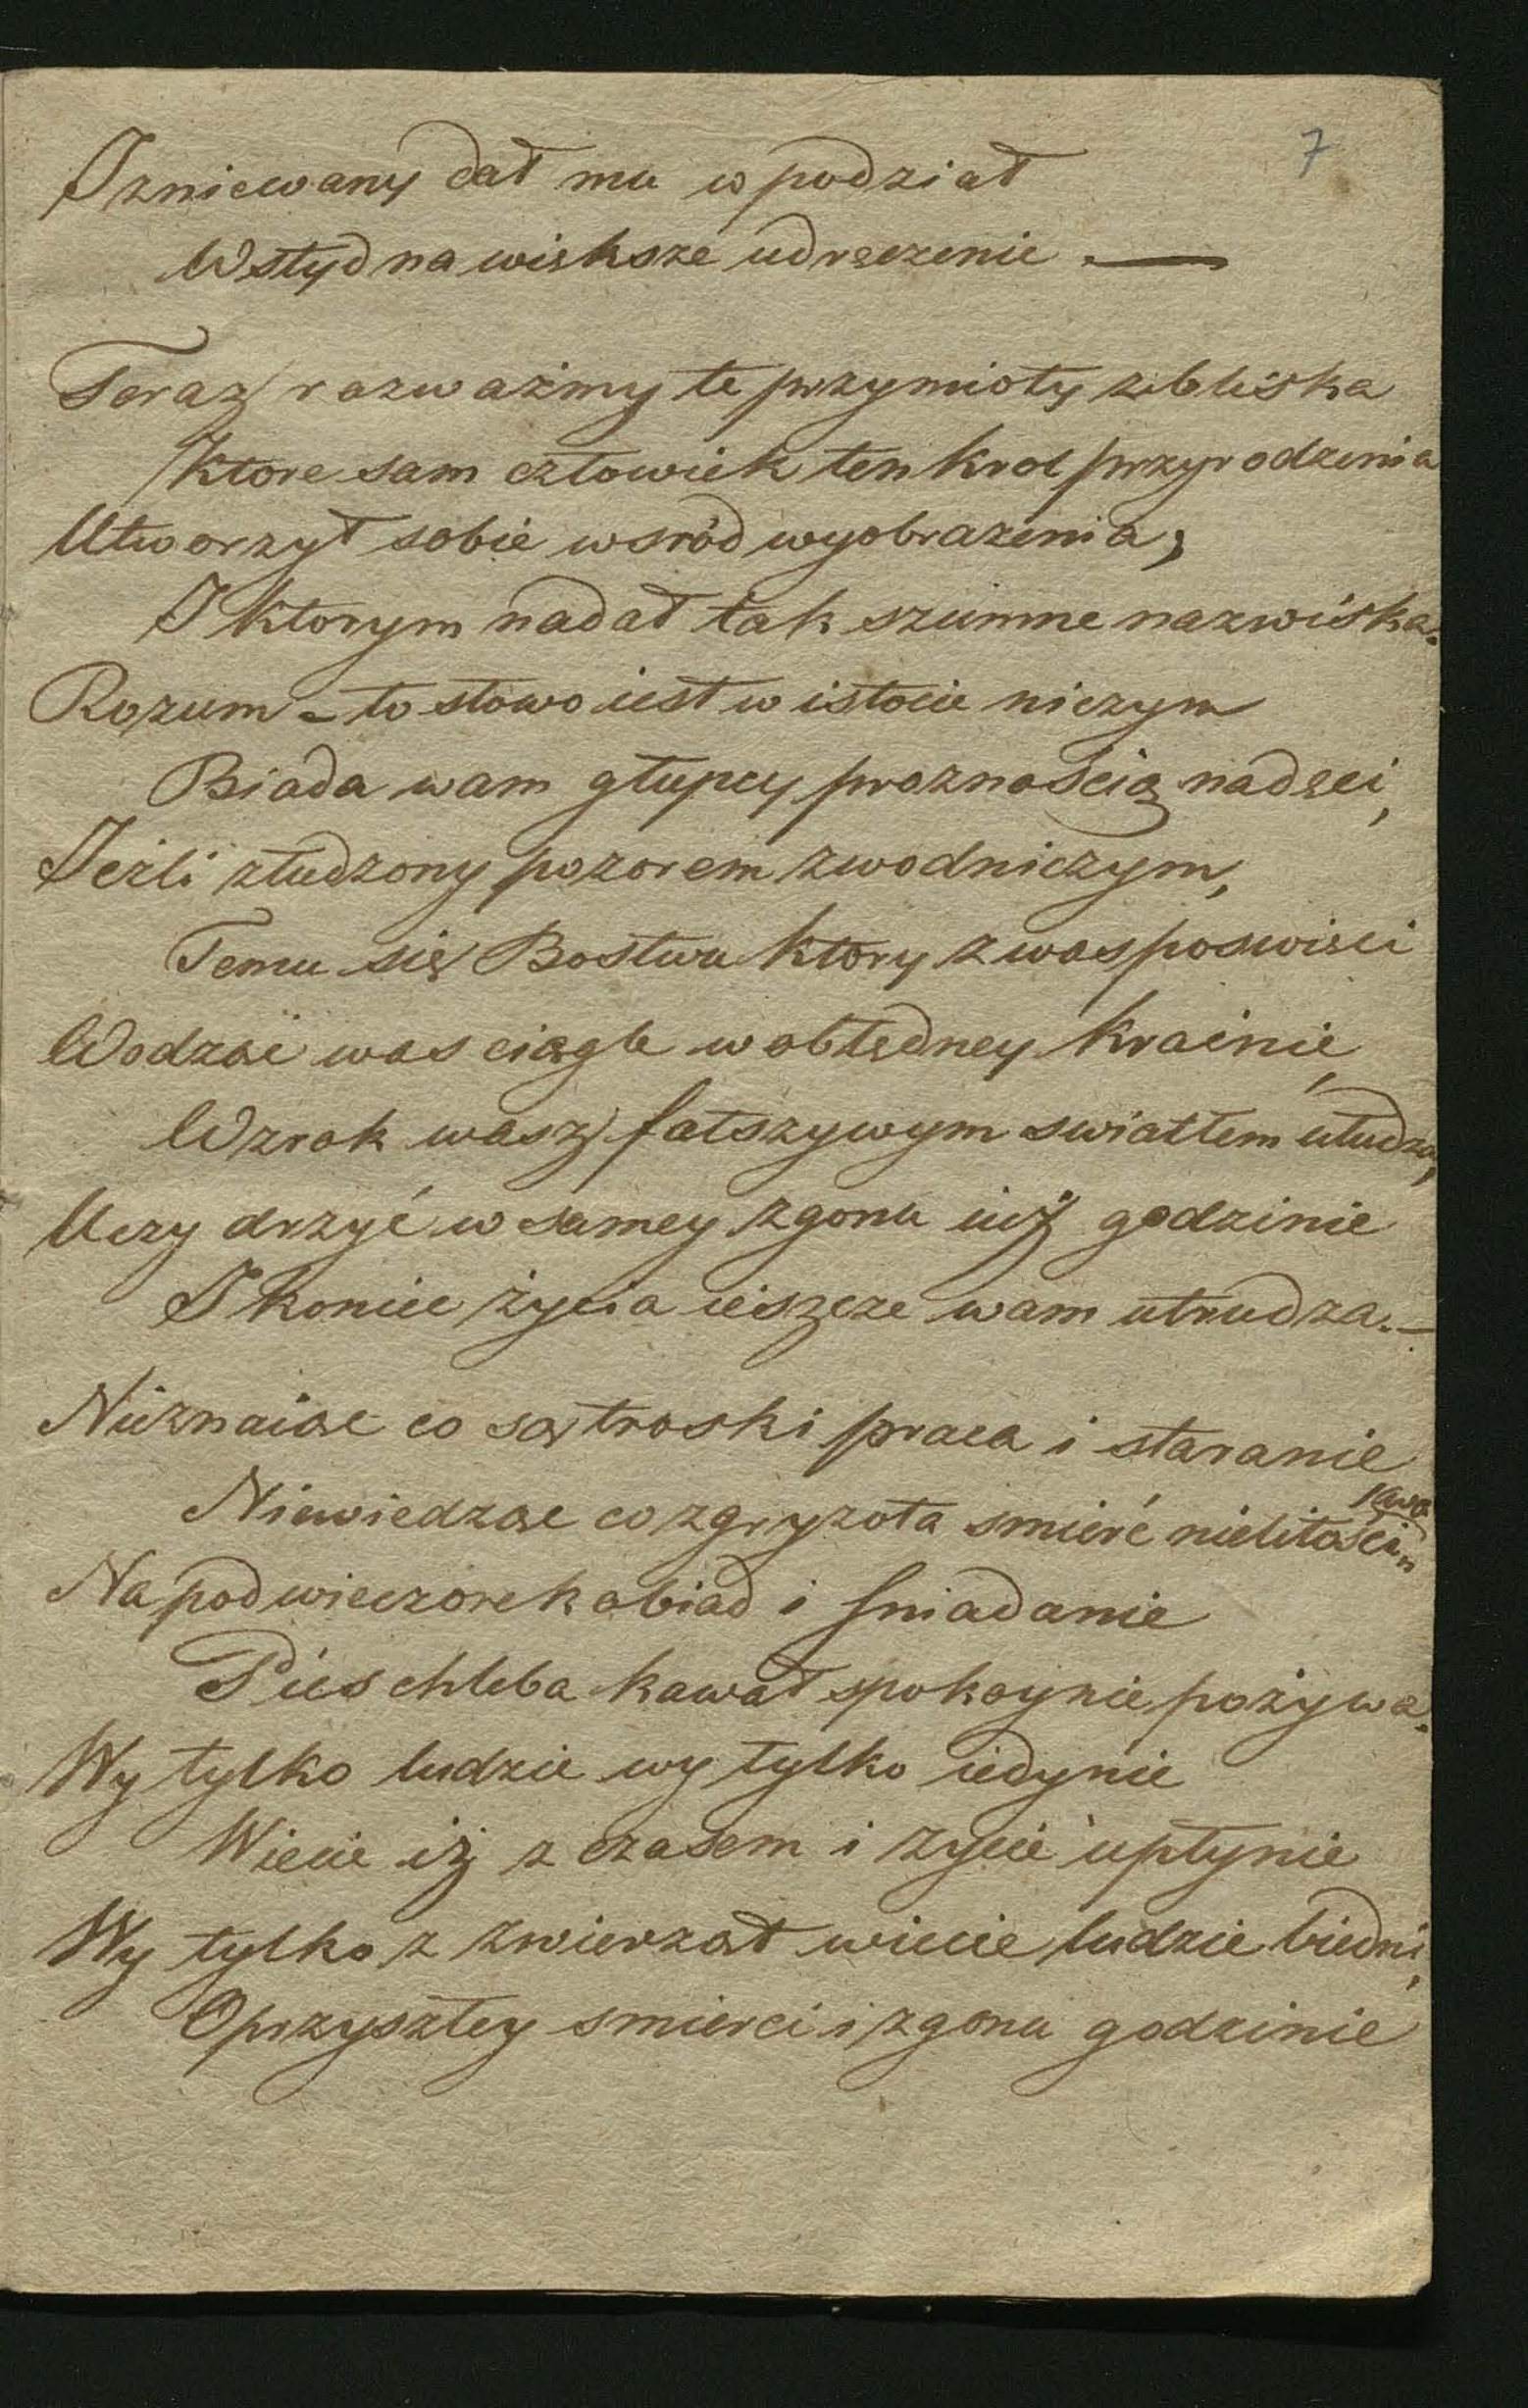 7
I zniewany dał mu w podział
Wstyd na większe udręczenie —
Teraz rozważmy te przymioty zbliska
Ktore sam człowiek ten krol przyrodzenia
Utworzył sobie wsród wyobrazenia,
I ktorym nadał tak szumne nazwiska.
Rozum – to słowo iest w istocie niczym
Biada wam głupcy proznością nadęci,
Jeżli złudzony pozorem zwodniczym,
Temu się Bostwu ktory z was poswięci
Wodząc was ciągle w obłędney krainie,
Wzrok wasz fałszywym swiatłem ułudza,
Uczy drzyć w samey zgonu iuż godzinie
I koniec życia ieszcze wam utrudza. –
Nieznaiąc co są troski praca i staranie
Niewiedząc co zgryzota smierć nielitości„
ẃa
Na podwieczorek obiad i sniadanie
Pies chleba kawał spokoynie pożywa.
Wy tylko ludzie wy tylko iedynie
Wiecie iż z czasem i zycie upłynie
Wy tylko z zwierząt wiecie ludzie biedni,
O przyszłey smierci i zgonu godzinie